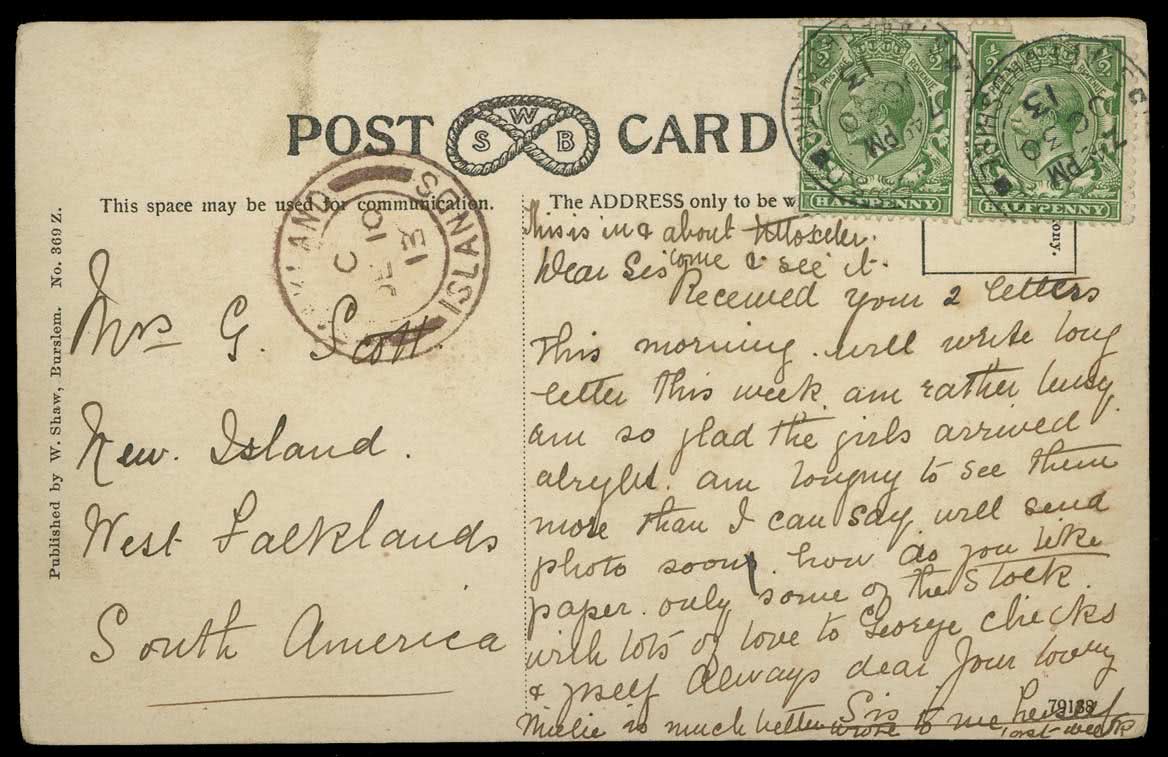 POST CARD
S W B
This space may be used for communication.
The ADDRESS only to be w
ony.
½ ½
POSTAGE REVENUE
HALFPENNY
½ ½
HALFPENNY
PM
OC 30
13
7
PM
OC 30
13
ISLANDS
C
DE 10
13
Published by W. Shaw, Burslem. No. 369 Z.
Mrs G. Scott.
New. Island.
West Falklands
South America
This is in & about
come & see it.
Dear Sis
Received your 2 letters
this morning. will write long
letter this week. am rather busy
am so glad the girls arrived
alryht. am longng to see them
more than I can say. will send
photo soon. how do you like
paper. only some of the Stock.
with lots of love to George checks
& yself Always dear Your lovng
Sis
Millie is much better wrote to me herself
last week
79188